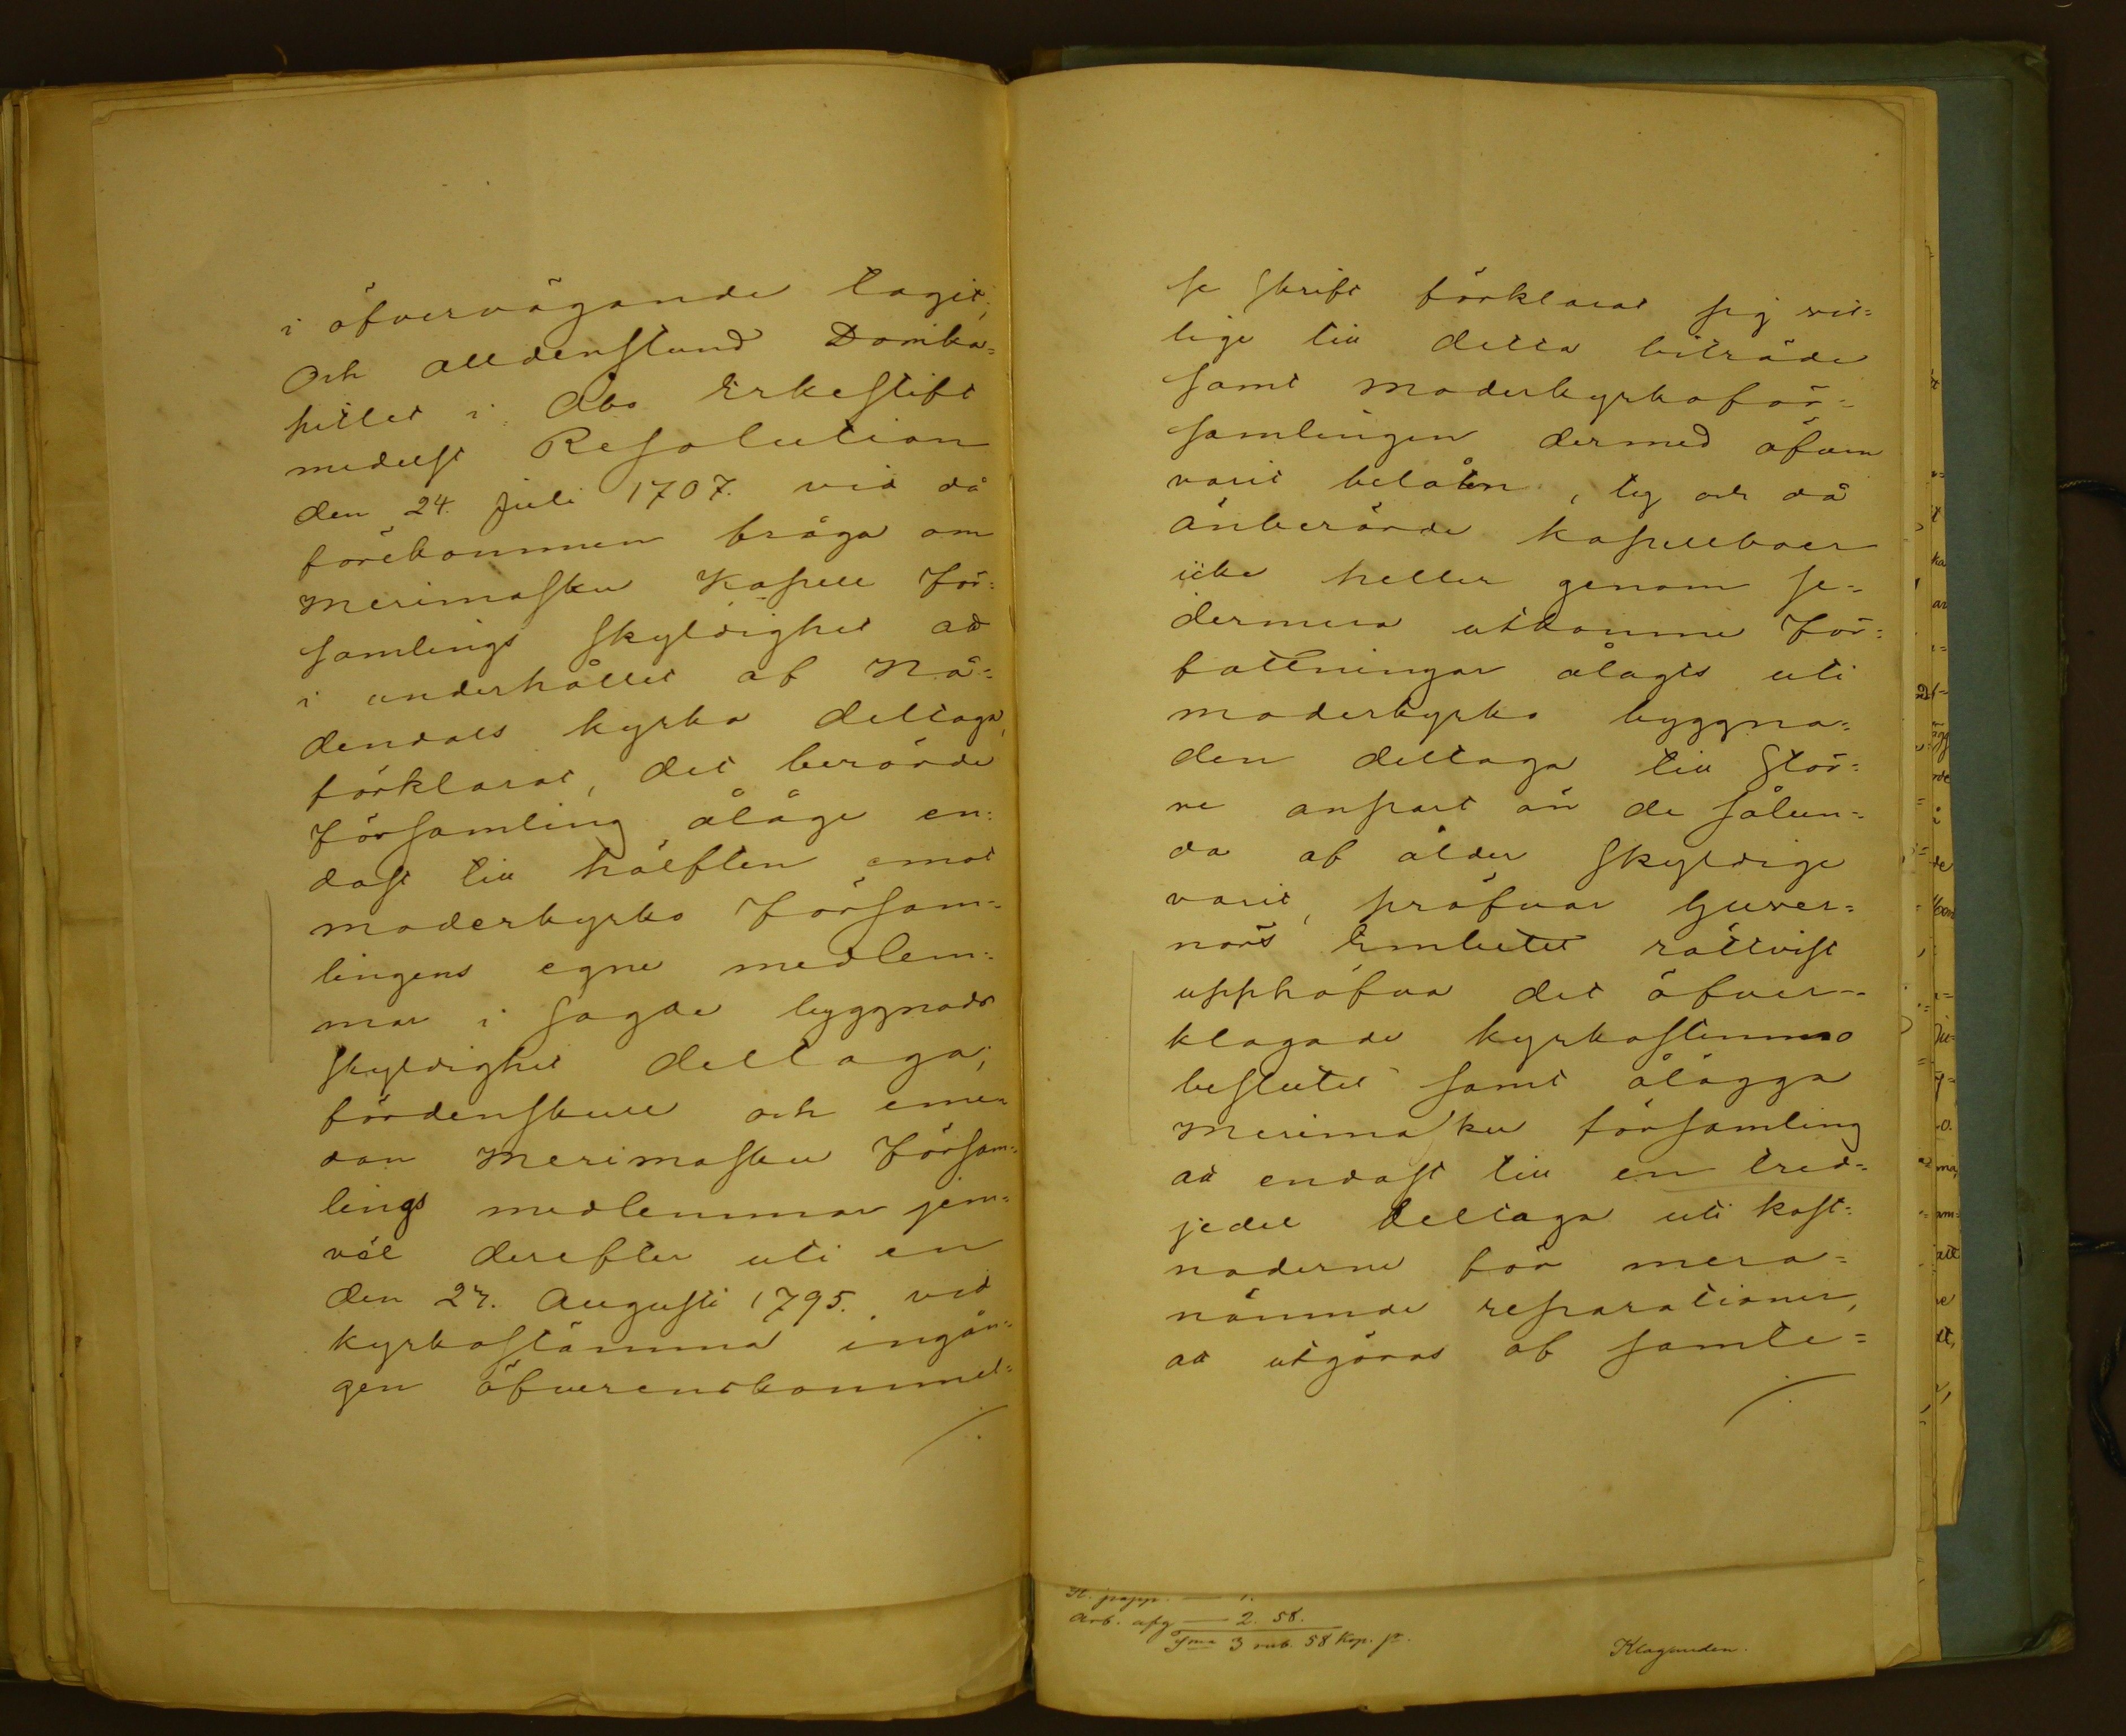 i öfvervägande tagit;
Och alldenstund Domka=
pitlet i Åbo Erkestift
medelst Resolution
den 24. Juli 1707. vid då
förekommen fråga om
Merimasku Kapell För=
samlings skyldighet att
i underhållet af Nå=
dendals kyrka deltaga,
förklarat, det berörde
Församling åläge en=
dast till hälften emot
moderkyrko Försam=
lingens egne medlem=
mar i sagde byggnads
skyldighet deltaga;
fördenskull och emen
dan Merimasku Försam=
lings medlemmar jem=
väl derefter uti en
den 27. Augusti 1795. vid
kyrkostämma ingån=
gen öfverenskommel=
./.
se skrift förklarat sig vil=
lige till detta biträde
samt moderkyrkoför=
samlingen dermed äfven
varit belåten, ty och då
ånberörde kapellboer
icke heller genom se=
dermera utkomne För=
fattningar ålagts uti
moderkyrko byggna=
den deltaga till Stör=
re anpart än de sålun=
da af ålder skyldige
varit, pröfvar Guver=
nörs Embetet rättvist
upphäfva det öfver=
klagade kyrkostemmo
beslutet samt ålägga
Merimasku församling
att endast till en tred=
jedel deltaga uti kost=
naderne för mera=
nämnde reparationer,
att utgöras af samte=
./.
St. papp. — 1.
Arb. afg — 2. 58.
S:ma 3 rub. 58 Kop. sr.
Klaganden.